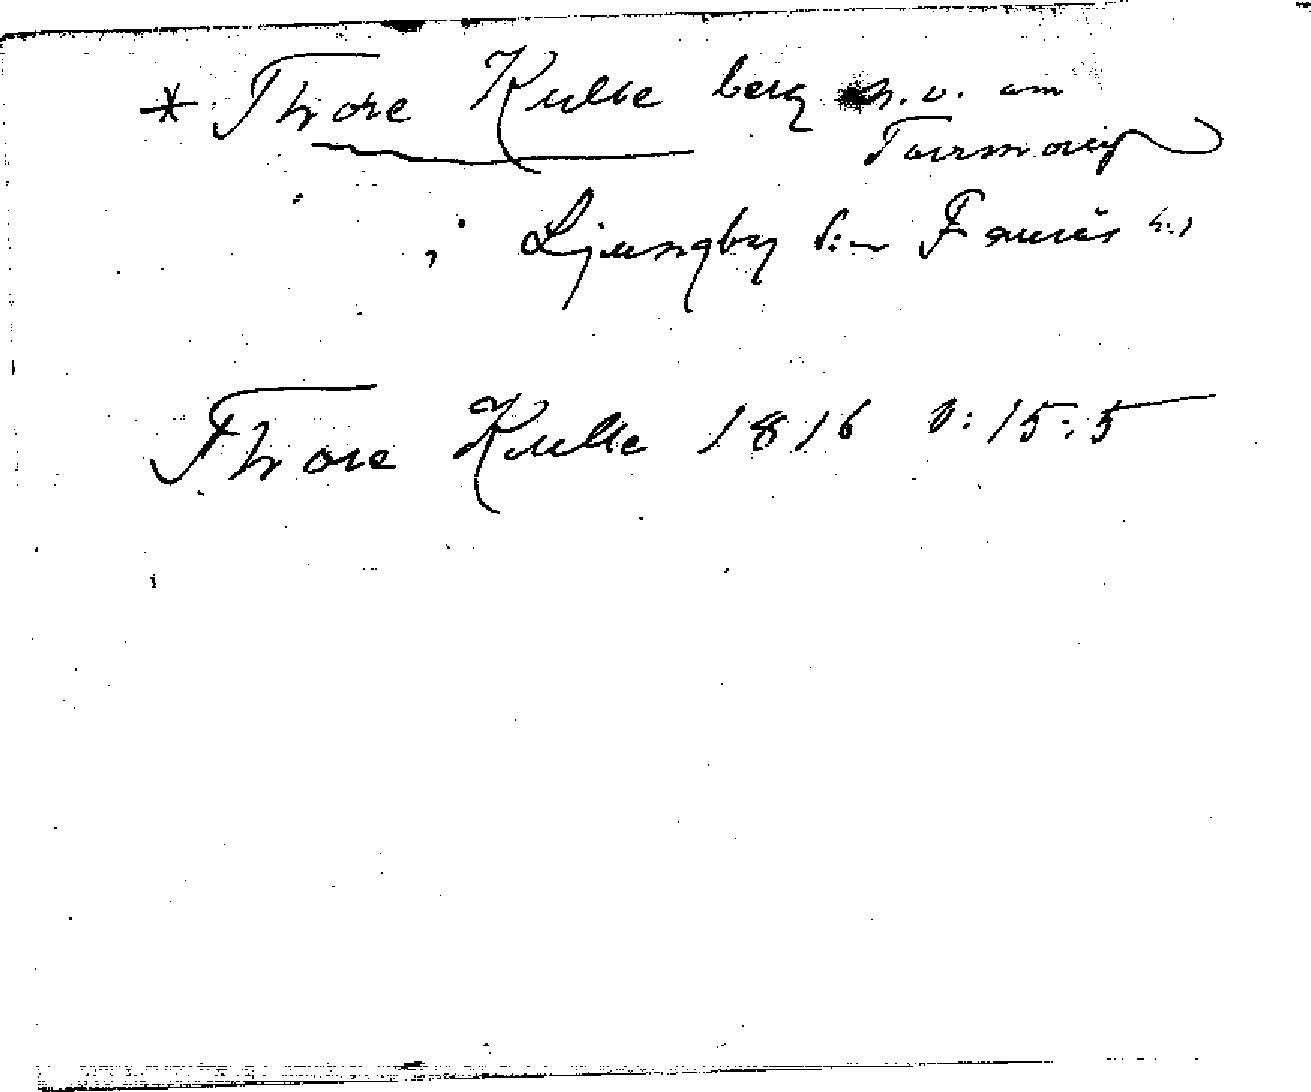 * Thore Kulle berg n.v. om
Tormarp
i Ljungby s:n Faurås hd
Thore Kulle 1816 0:15:5